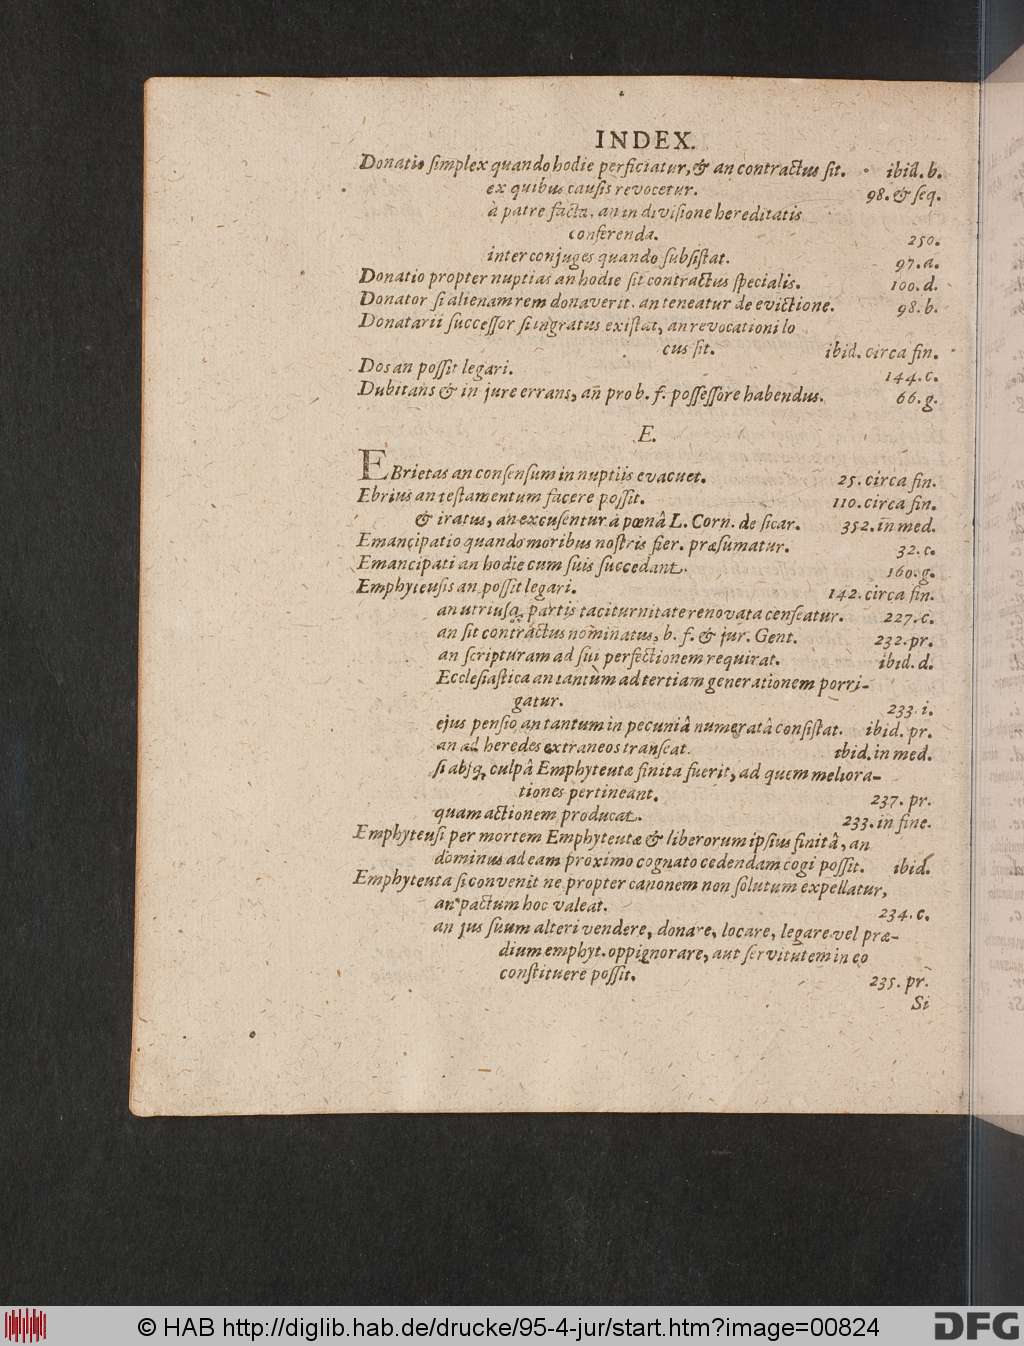 INDEX.
Donatio ſimplex quando hodie perficiatur, & an contractus ſit. ibid. b.
ex quibus cauſis revocetur. 98. & ſeq.
à patre facta, an in diviſione hereditatis
conferenda. 250.
inter conjuges quando ſubſiſtat. 97. a.
Donatio propter nuptias an hodie ſit contractus ſpecialis. 100. d.
Donator ſi alienam rem donaverit, an teneatur de evictione. 98. b.
Donatarii ſucceſſor ſi ingratus exiſtat, an revocationi lo
cus ſit. ibid. circa fin.
Dos an poſſit legari. 144. c.
Dubitans & in jure errans, an pro b. f. poſſeſſore habendus. 66. g.
E.
EBrietas an conſenſum in nuptiis evacuet. 25. circa fin.
Ebrius an teſtamentum facere poſſit. 110. circa fin.
& iratus, an excuſentur à pœnâ L. Corn. de ſicar. 352. in med.
Emancipatio quando moribus noſtris fier. præſumatur. 32. c.
Emancipati an hodie cum ſuis ſuccedant. 160. g.
Emphyteuſis an poſſit legari. 142. circa fin.
an utriuſq; partis taciturnitate renovata cenſeatur. 227. c.
an ſit contractus nominatus, b. f. & jur. Gent. 232. pr.
an ſcripturam ad ſui perfectionem requirat. ibid. d.
Eccleſiaſtica an tantùm ad tertiam generationem porri-
gatur. 233. i.
ejus penſio an tantum in pecuniâ numeratâ conſiſtat. ibid. pr.
an ad heredes extraneos tranſeat. ibid. in med.
ſi abſq; culpâ Emphyteutæ finita fuerit, ad quem meliora-
tiones pertineant. 237. pr.
quam actionem producat. 233. in fine.
Emphyteuſi per mortem Emphyteutæ & liberorum ipſius finitâ, an
dominus ad eam proximo cognato cedendam cogi poſſit. ibid.
Emphyteuta ſi convenit ne propter canonem non ſolutum expellatur,
an pactum hoc valeat. 234. c.
an jus ſuum alteri vendere, donare, locare, legare vel præ-
dium emphyt. oppignorare, aut ſervitutem in eo
conſtituere poſſit. 235. pr.
Si
© HAB http://diglib.hab.de/drucke/95-4-jur/start.htm?image=00824
DFG